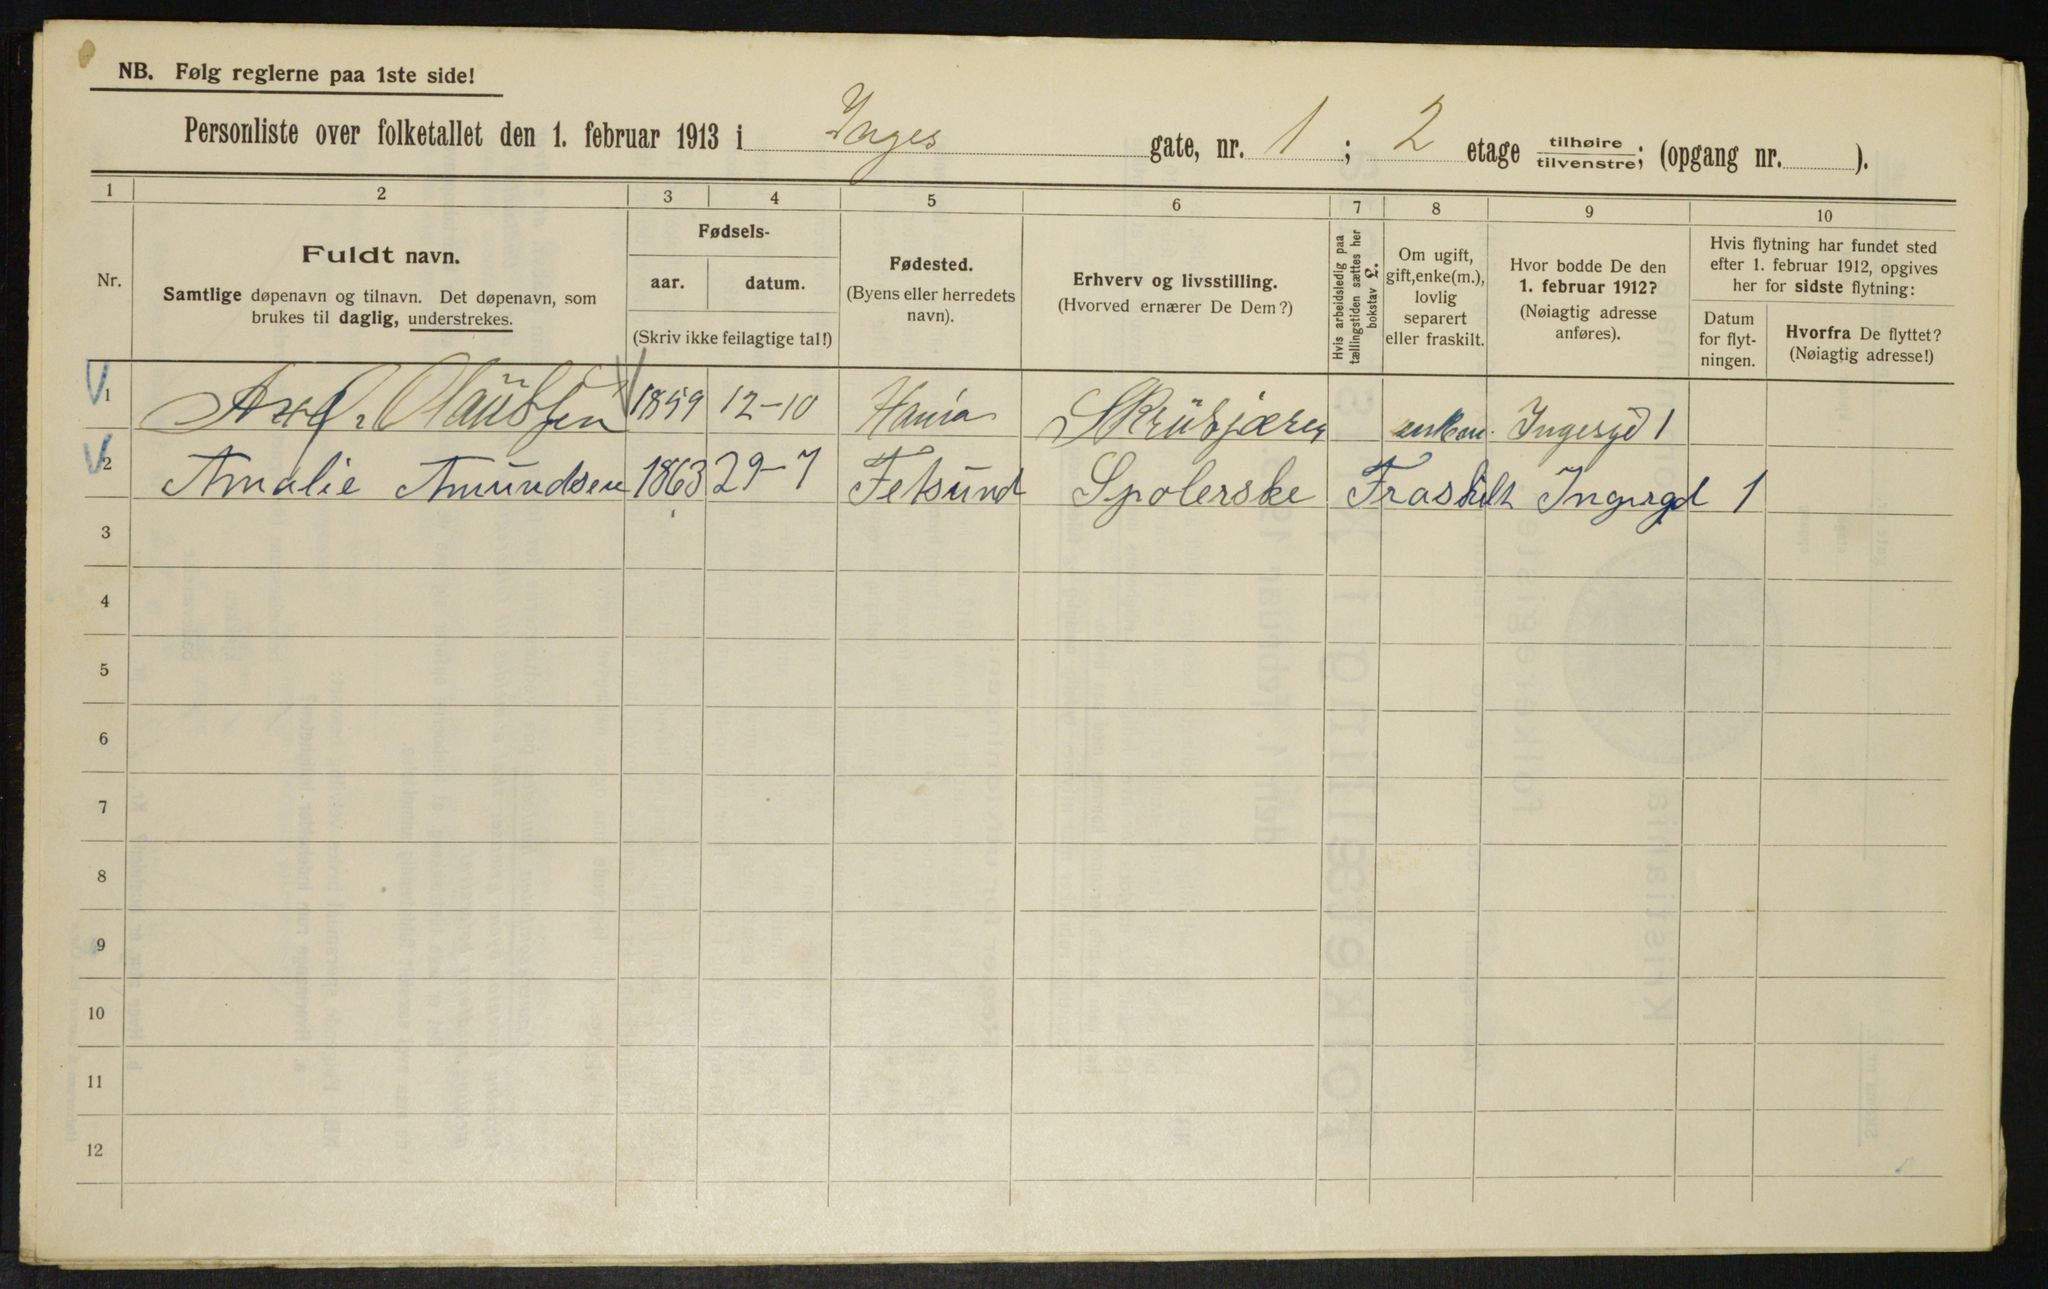 NB. Følg reglerne paa 1ste side!
Personliste over folketallet den 1. februar 1913 i Inges gate, nr. 1; 2 etage tilhøire tilvenstre; (opgang nr. ).
1 2 3 4 5 6 7 8 9 10
Nr.
Fuldt navn.
Samtlige døpenavn og tilnavn. Det døpenavn, som
brukes til daglig, understrekes.
Fødsels-
aar. datum.
(Skriv ikke feilagtige tal!)
Fødested.
(Byens eller herredets
navn).
Erhverv og livsstilling.
(Hvorved ernærer De Dem?)
Hvis arbeidsledig paa
tællingstiden sættes her
bokstav £.
Om ugift,
gift, enke(m.),
lovlig
separert
eller fraskilt.
Hvor bodde De den
1. februar 1912?
(Nøiagtig adresse
anføres).
Hvis flytning har fundet sted
efter 1. februar 1912, opgives
her for sidste flytning:
Datum
for flyt-
ningen.
Hvorfra De flyttet?
(Nøiagtig adresse!)
1 Olaussen 1859 12-10 enkem. Ingesgd 1
2 Amalie Amundsen 1863 29-7 Fetsund Spolerske Fraskilt Ingesgd 1
3
4
5
6
7
8
9
10
11
12